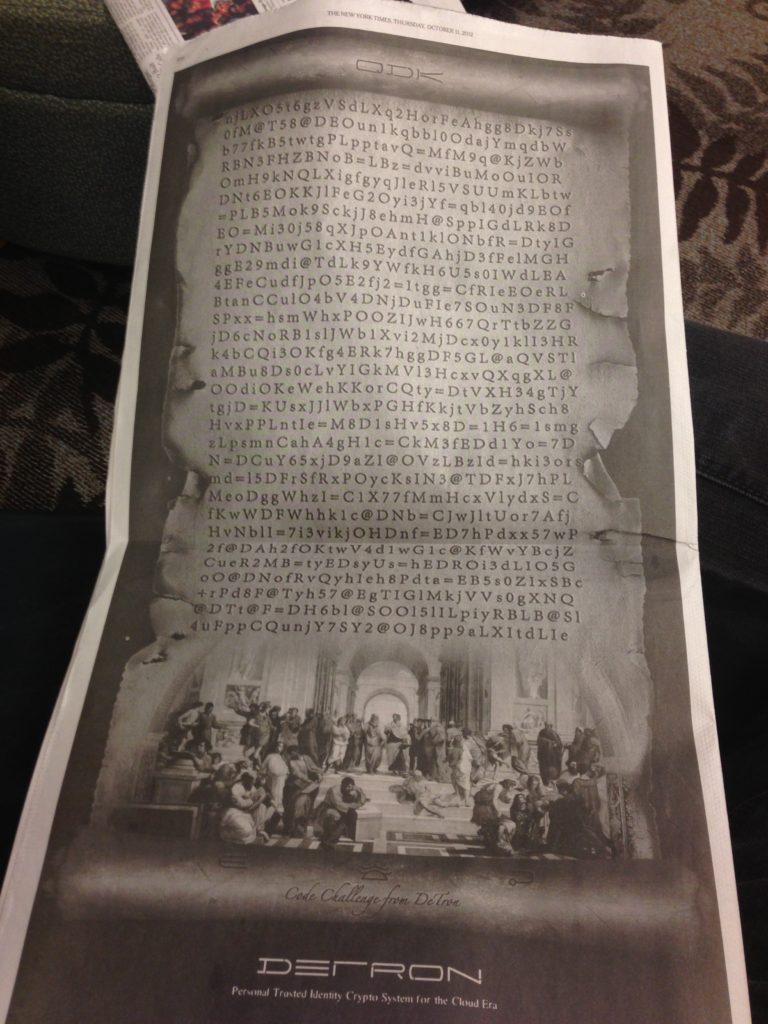 THE NEW YORK TIMES, THURSDAY, OCTOBER 11, 2012
njLXO5t6gzVSdLXq2HorFeAhgg8Dkj7Ss
0fM@T58@DEOun1kqbbl0OdajYmqdbW
b77fkB5twtgPLpptavQ=MfM9q@KjZWb
RBN3FHZBNoB=LBz=dvviBuMoOuIOR
OmH9kNQLXigfgyqJleRl5VSUUmKLbtw
DNt6EOKKJlFeG2Oyi3jYf=qbl40jd9EOf
=PLB5Mok9SckjJ8ehmH@SppIGdLRk8D
EO=Mi30j58qXJpOAnt1klONbfR=DtyIG
rYDNBuwG1cXH5EydfGAhjD3fFelMGH
ggE29mdi@TdLk9YWfkH6U5s0IWdLEA
4EFeCudfJpO5E2fj2=1tgg=CfRIeEOeRL
BtanCCulO4bV4DNjDuFIe7SOuN3DF8F
SPxx=hsmWhxPOOZIJwH667QrTtbZZG
jD6cNoRB1slJWb1Xvi2MjDcx0y1klI3HR
k4bCQi3OKfg4ERk7hggDF5GL@aQVSTl
aMBu8Ds0cLvYIGkMVl3HcxvQXqgXL@
OOdiOKeWehKKorCQty=DtVXH34gTjY
tgjD=KUsxJJlWbxPGHfKkjtVbZyhSch8
HvxPPLntIe=M8D1sHv5x8D=1H6=1smg
zLpsmnCahA4gH1c=CkM3fEDd1Yo=7D
N=DCuY65xjD9aZI@OVzLBzId=hki3ors
md=l5DFrSfRxPOycKsIN3@TDFxJ7hPL
MeoDggWhzI=C1X77fMmHcxVlydxS=C
fKwWDFWhhk1c@DNb=CJwJltUor7Afj
HvNbl1=7i3vikjOHDnf=ED7hPdxx57wP
2f@DAh2fOKtwV4d1wG1c@KfWvYBcjZ
CueR2MB=tyEDsyUs=hEDROi3dLIO5G
oO@DNofRvQyhIeh8Pdta=EB5s0ZlxSBc
+rPd8F@Tyh57@EgTIGlMkjVVs0gXNQ
@DTt@F=DH6bl@SOOl5lILpiyRBLB@Sl
4uFppCQunjY7SY2@OJ8pp9aLXItdLIe
Code Challenge from DeTron
DETRON
Personal Trusted Identity Crypto System for the Cloud Era